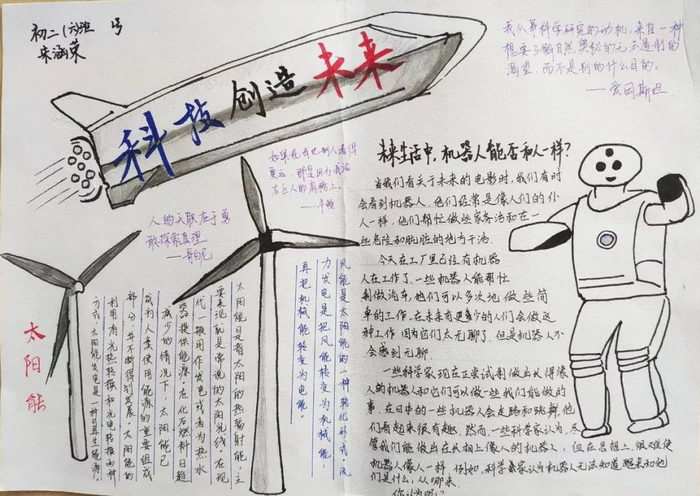 初二(六)班 号
宋涵荣
科技创造未来
我从事科学研究的动机,来自一种
想要了解自然奥秘的无法遏制的
渴望,而不是别的什么目的。
——爱因斯坦
如果说我比别人看得
更远,那是因为我站
在巨人的肩膀上。
——牛顿
人的天职在于勇
敢探索真理
——哥白尼
太阳能
太阳能是指太阳的热辐射能,主
要表现就是常说的太阳光线。在现
代一般用作发电或者为热水
器提供能源。在化石燃料日趋
减少的情况下,太阳能已
成为人类使用能源的重要组成
部分,并不断得到发展。太阳能的
利用有光热转换和光电转换两种
方式,太阳能发电是一种可再生能源。
风能是太阳能的一种转化形式,风
力发电是把风能转变为机械能,
再把机械能转变为电能。
未来生活中,机器人能否和人一样?
当我们看关于未来的电影时,我们有时
会看到机器人。他们经常是像人们的仆
人一样,他们帮忙做些家务活和在一
些危险和肮脏的地方干活。
今天在工厂里已经有机器
人在工作了。一些机器人能帮忙
制做汽车,他们可以多次地做些简
单的工作,在未来有更少的人们会做这
种工作因为它们太无聊了。但是机器人不
会感到无聊
一些科学家现在正尝试制做出长得像
人的机器人和它们可以做一些我们能做的
事,在日本的一些机器人会走路和跳舞,他
们看起来很有趣。然而,一些科学家认为尽
管我们能做出在长相上像人的机器人,但在思想上,很难使
机器人像人一样。例如,科学家认为机器人无法知道醒来和他
们是什么,从哪来。
你认为呢?